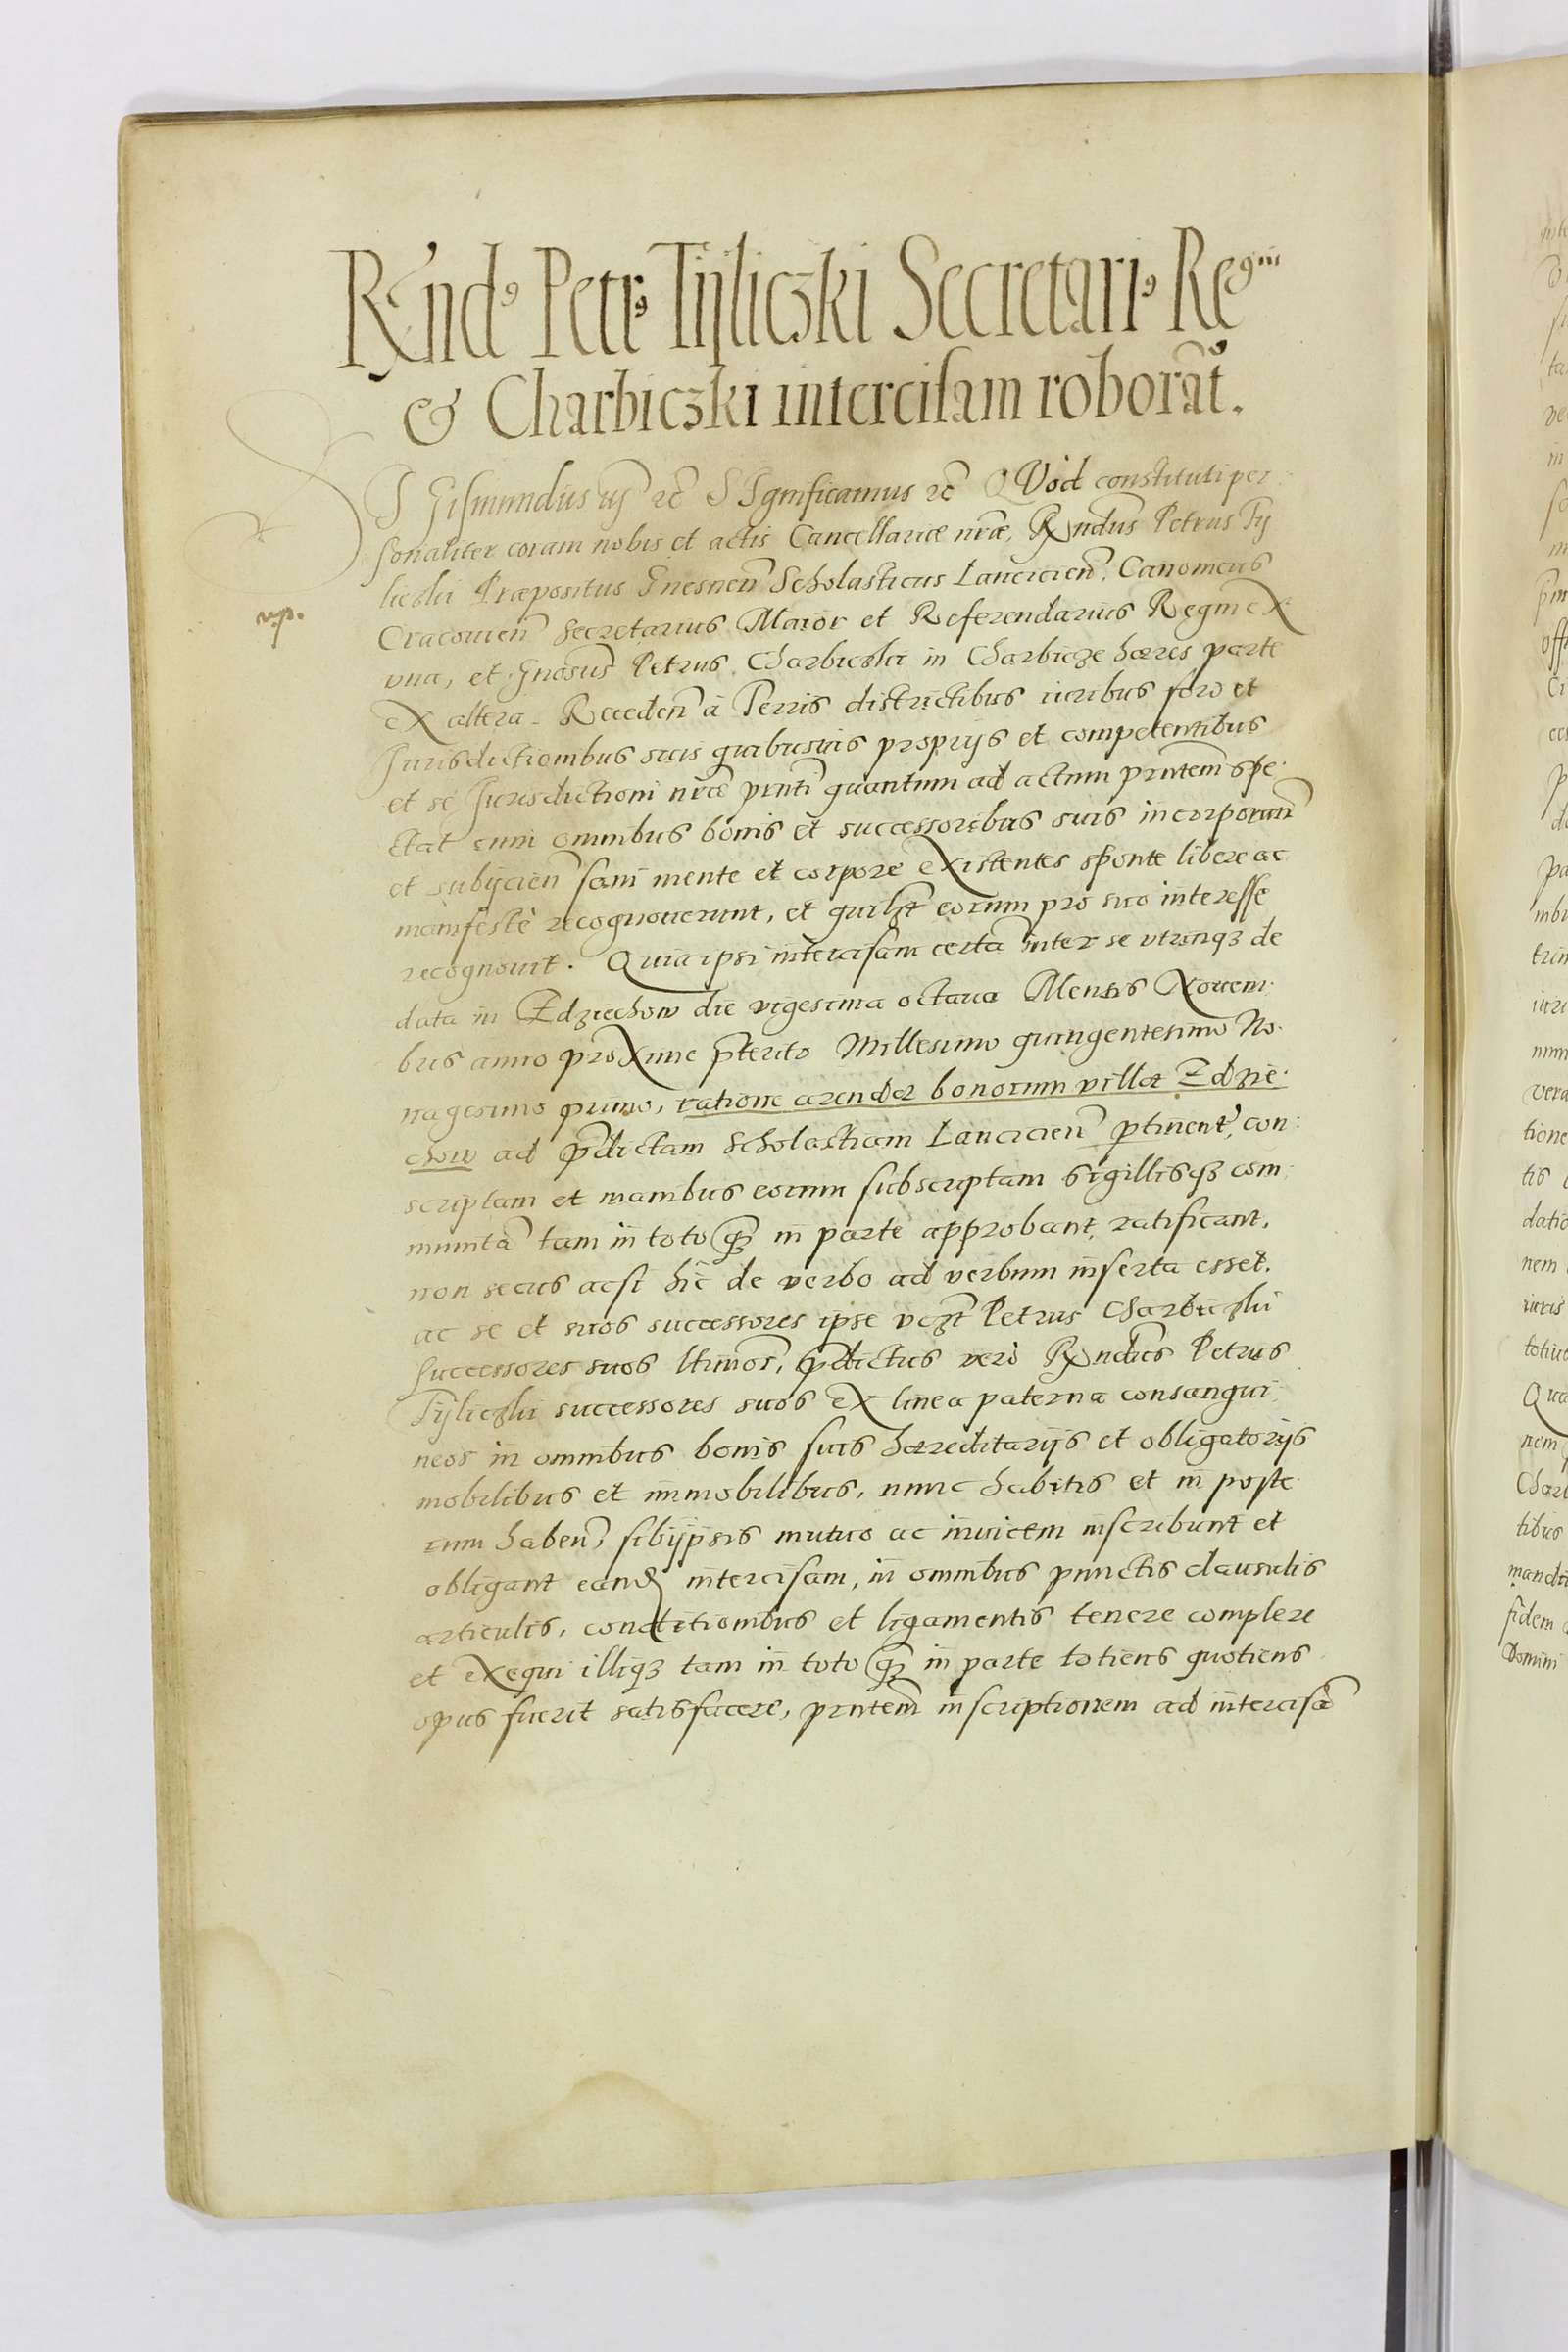 Rñdꝰ Petrꝰ Tijliczki Secretariꝰ Regni
& Charbiczki intercisam roborāt.
SIgismundus iij ꝛc̃ SIgnificamus ꝛc̃ QVod constituti per
sonaliter coram nobis et actis Cancellariæ nræ, Rñdus Petrus Ty
liczki Præpositus Gnesneñ Scholasticus Lancicieñ, Canonicus
Cracouieñ Secretarius Maior et Referendarius Regni ex
vp.
vna, et Gnosus Petrus Charbiczki in Charbicze hæres parte
ex altera. Recedeñ à Terris districtibus iuribus foro et
Jurisdictionibus suis quibusuis proprijs et competentibus
et se Jurisdictioni nræ pñti quantum ad actum pñtem spe
ctat cum omnibus bonis et successoribus suis incorporañ
et subijcieñ sani mente et corpore existentes sponte libere ac
manifestè recognouerunt, et quilt eorum pro suo interesse
recognouit. Quia ipsi intercisam certã inter se vtrinqꝫ de
data in Zdziechow die vigesima octaua Mensis Nouem
bris anno proxime p̃terito Millesimo quingentesimo No
nagesimo primo, ratione arendæ bonorum villæ Zdzie
chow ad p̃dictam Scholastriam Lancicieñ ptineñt, con:
scriptam et manibus eorum subscriptam sigillisqꝫ com
munitã tam in toto qꝫ in parte approbant, ratificant,
non secus acsi hic de verbo ad verbum inserta esset.
ac se et suos successores ipse vꝫt Petrus Charbiczki
Successores suos ltimos, p̃dictus verò Rñdus Petrus
Tijliczki successores suos ex linea paterna consangui
neos in omnibus bonis suis hæreditarijs et obligatorijs
mobilibus et immobilibus, nunc habitis et in poste
rum habeñ, sibijpsis mutuo ac inuicem inscribunt et
obligant eand intercisam, in omnibus punctis clausulis
articulis, conditionibus et ligamentis tenere complere
et exequi illiqꝫ tam in toto qꝫ in parte totiens quotiens
opus fuerit satisfacere, pñtem inscriptionem ad intercisã